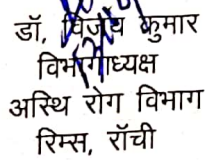 डॉ. विजय कुमार
विभागाध्यक्ष
अस्थि रोग विभाग
रिम्स, राँची